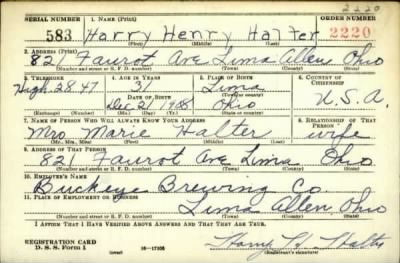 2220
SERIAL NUMBER 1. NAME (Print) ORDER NUMBER
583 Harry Henry Halter 2220
(First) (Middle) (Last)
2. ADDRESS (Print)
82 Faurot Ave Lima Allen Ohio
(Number and street or R. F. D. number) (Town) (County) (State)
3. TELEPHONE 4. AGE IN YEARS 5. PLACE OF BIRTH 6. COUNTRY OF CITIZENSHIP
High 2847 31 Lima
DATE OF BIRTH (Town or county)
Dec 21 1908 Ohio U.S.A.
(Exchange) (Number) (Mo.) (Day) (Yr.) (State or country)
7. NAME OF PERSON WHO WILL ALWAYS KNOW YOUR ADDRESS 8. RELATIONSHIP OF THAT PERSON
Mrs Marie Halter wife
(Mr., Mrs., Miss) (First) (Middle) (Last)
9. ADDRESS OF THAT PERSON
821 Faurot Ave Lima Ohio
(Number and street or R. F. D. number) (Town) (County) (State)
10. EMPLOYER'S NAME
Buckeye Brewing Co.
11. PLACE OF EMPLOYMENT OR BUSINESS
Lima Allen Ohio
(Number and street or R. F. D. number) (Town) (County) (State)
I AFFIRM THAT I HAVE VERIFIED ABOVE ANSWERS AND THAT THEY ARE TRUE.
REGISTRATION CARD
D. S. S. Form 1 16—17105 Harry H. Halter
(Registrant's signature)